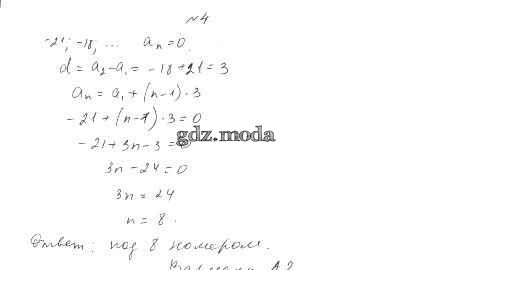 №4
-21; -18; ... aₙ = 0.
d = a₂ - a₁ = -18 + 21 = 3
aₙ = a₁ + (n-1) · 3
-21 + (n-1) · 3 = 0
gdz.moda
-21 + 3n - 3 = 0
3n - 24 = 0
3n = 24
n = 8.
Ответ: под 8 номером.